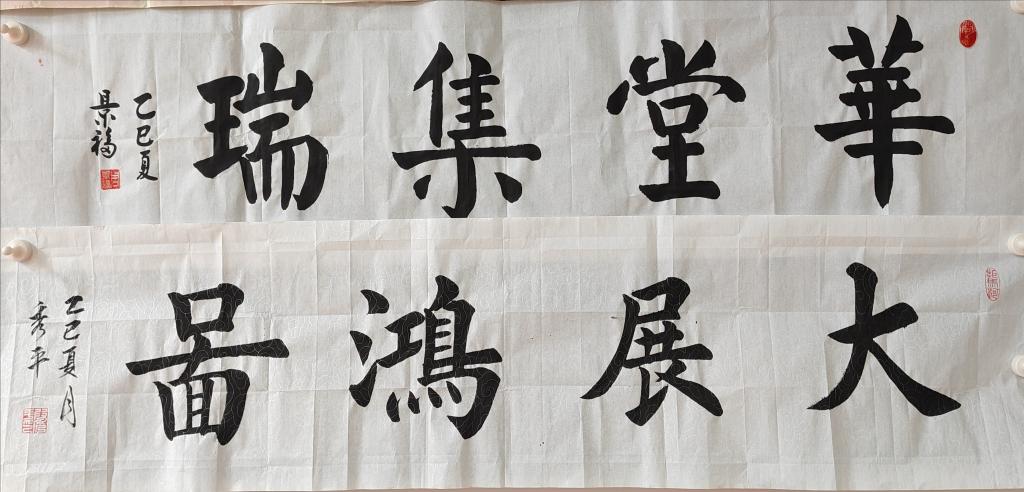 華堂集瑞
乙巳夏
景福
大展鴻啚
乙巳夏月
秀平